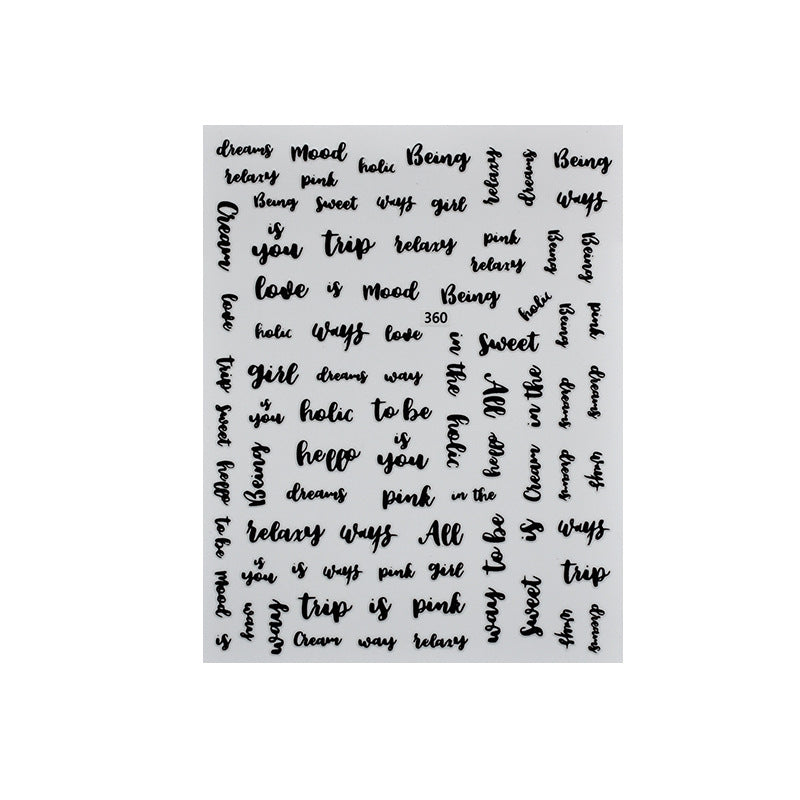 dreams Mood holic Being relaxy dreams Being
relaxy pink
Being Sweet ways girl ways
Cream
is
you trip relaxy pink Being Being
relaxy
love is Mood Being holic
love
360
holic ways love in the Sweet Being pink
trip
girl dreams way All in the dreams dreams
is
you holic to be holic
sweet
heppo
is
you heppo
Being
heppo
Cream dreams ways
dreams pink in the
to be
relaxy ways All way to be is ways
is
you is ways pink girl trip
Mood
trip is pink Sweet
way way ways dreams
is Cream way relaxy